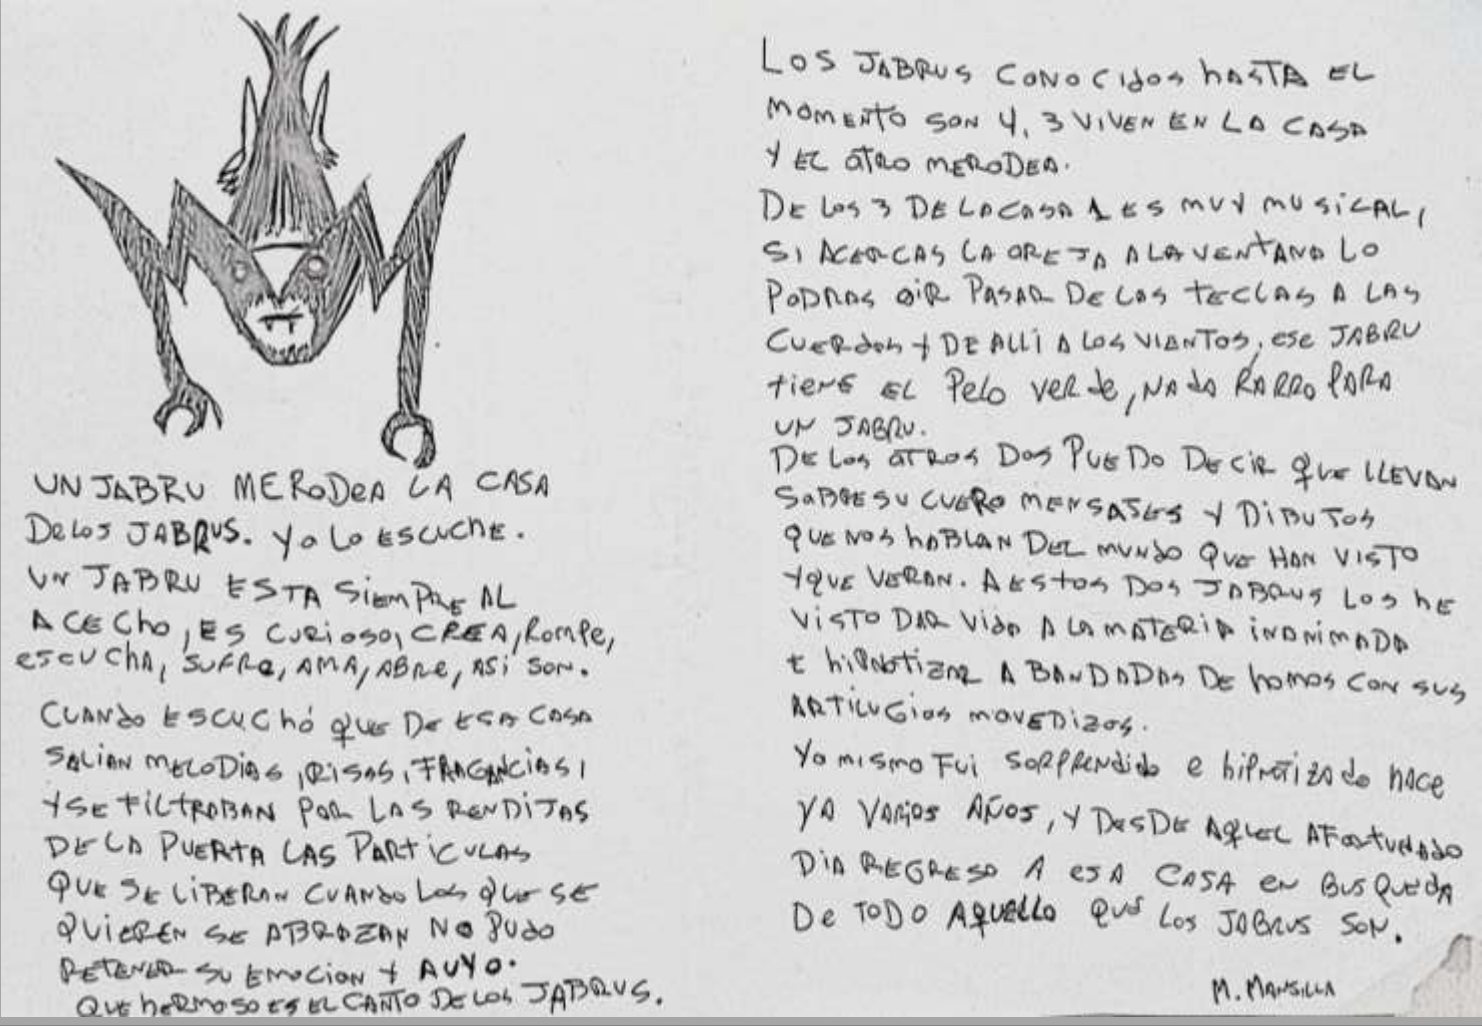 UN JABRU MERODEA LA CASA
De los JABRUS. Yo Lo ESCUCHE.
UN JABRU ESTA SIEMPRE AL
ACECHO, ES CURIOSO, CREA, Rompe,
escucha, SUFRe, AMA, ABRe, ASI SON.
CUANdo ESCUCHó QUE DE ESA CASA
SALIAN MELODIAS, RISAS, FRAGANCIAS,
Y SE FILTRABAN POR LAS RENDIJAS
DE LA PUERTA LAS PARTICULAS
QUE SE LIBERAN CUANdo LOS QUE SE
QUIEREN SE ABRAZAN NO PUdo
RETENER SU EMOCION Y AUYO.
QUE hERMOSO ES EL CANTO DE LOS JABRUS.
LOS JABRUS CONOCIdos hASTA EL
MOMENTO SON 4, 3 VIVEN EN LA CASA
Y EL OTRO MERODEA.
DE LOS 3 DE LA CASA 1 ES MUY MUSICAL,
SI ACERCAS LA OREJA A LA VENTANA LO
PODRAS OIR PASAR DE LAS TECLAS A LAS
CUERdas Y DE ALLI A LOS VIENTOS, ese JABRU
tiene EL Pelo VERde, NAdA RARRO PARA
UN JABRU.
DE LOS OTROS DOS PUEDO DECIR QUE LLEVAN
SOBRE SU CUERO MENSAJES Y DIBUJOS
QUE NOS hABLAN DEL MUNDO QUE HAN VISTO
Y QUE VERAN. A ESTOS DOS JABRUS LOS hE
VISTO DAR VIdA A LA MATERIA INANIMADA
E hIPNOTIZAR A BANDADAS DE hOMOS CON SUS
ARTILUGIOS MOVEDIZOS.
Yo mismo FUI SORPRENdido e hipnotizado hace
YA VARIOS AÑOS, Y DESDE AQUEL AFORTUNAdo
DIA REGRESO A ESA CASA EN BUSQUEdA
De TODO AQUELLO QUE LOS JABRUS SON.
M. MANSILLA